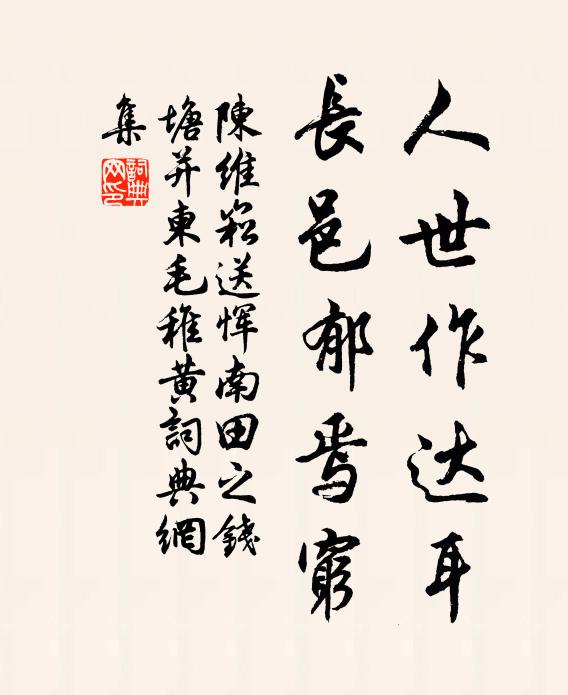 人世作达耳
長邑郁焉窮
陳維崧送恽南田之錢
塘并柬毛稚黄詞典網
集
詞典
网印